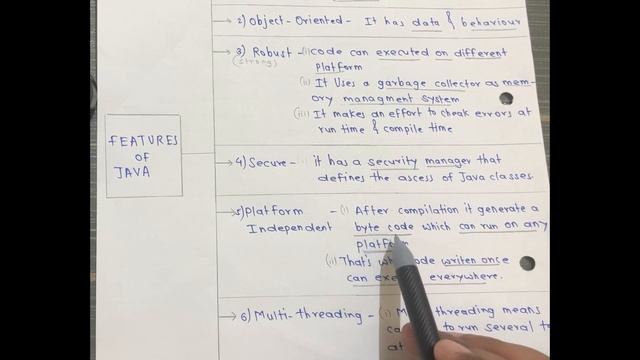 2) Object-Oriented - It has data & behaviour
3) Robust - (i) code can executed on different
(strong)
Platform
(ii) It Uses a garbage collector as mem-
ory managment system
(iii) It makes an effort to cheak errors at
run time & compile time
FEATURES
OF
JAVA
4) Secure - it has a security manager that
defines the ascess of Java classes.
5) Platform - (i) After compilation it generate a
Independent byte code which can run on any
platform
(ii) That's code writen once
can everywhere.
6) Multi-threading - (i) threading means
to run several
at